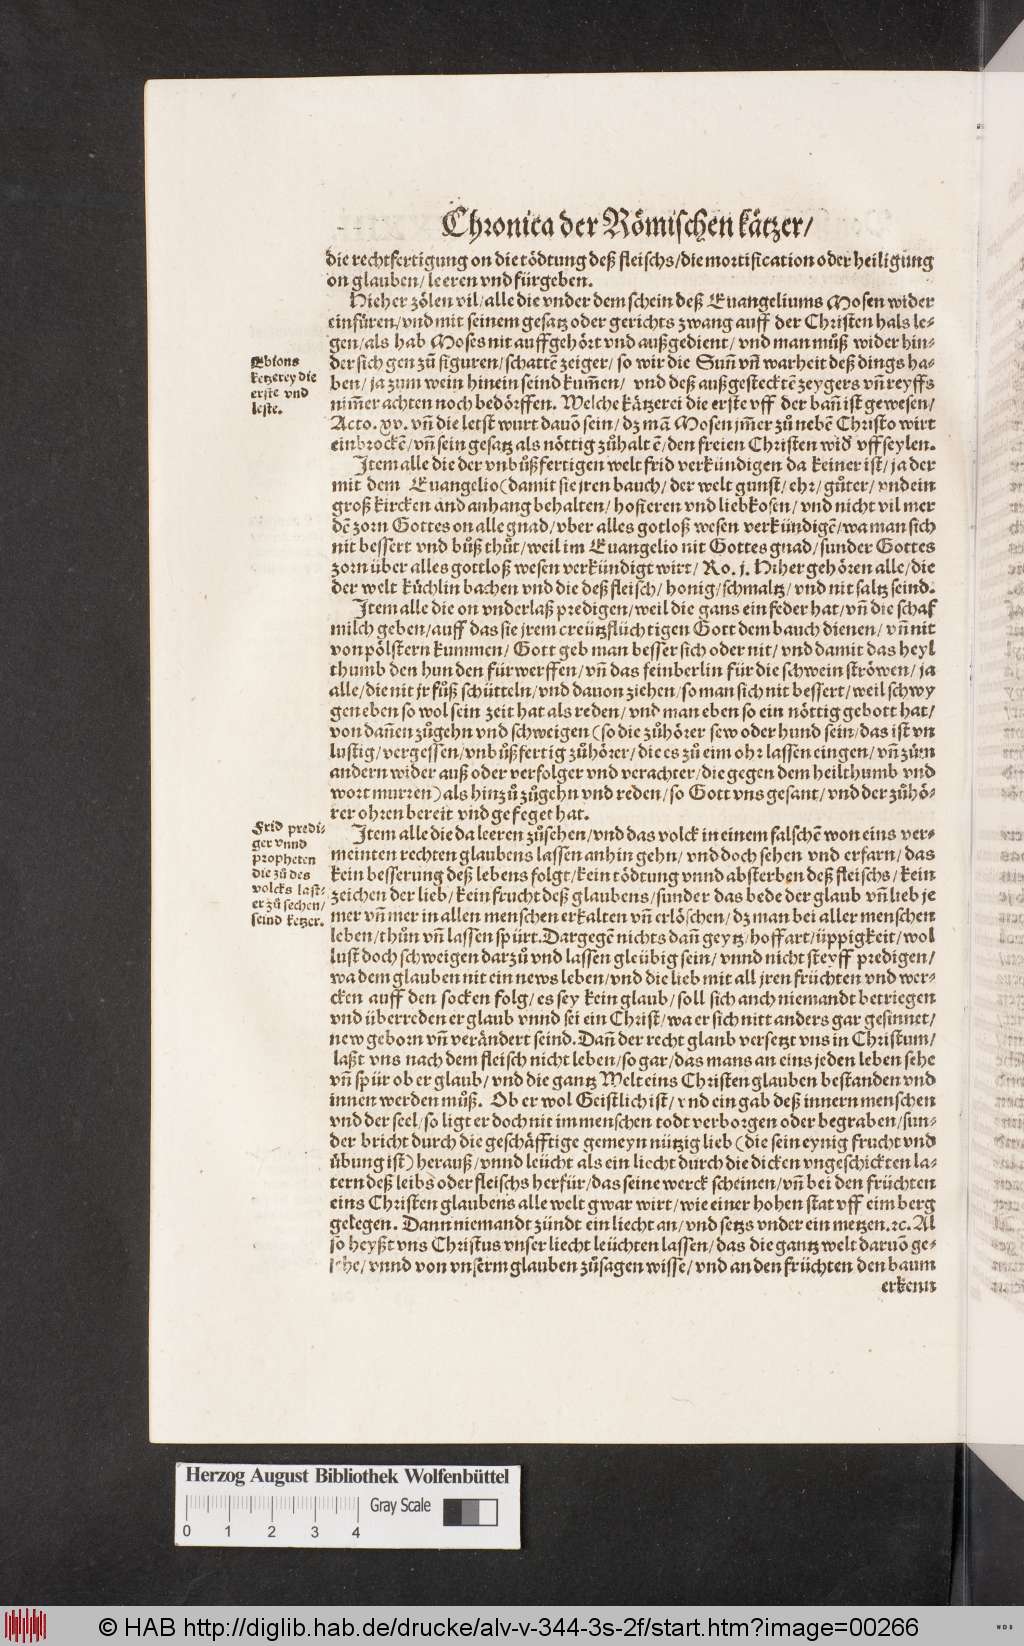 Chronica der Römischen kätzer/
die rechtfertigung on die tödtung deß fleischs/die mortification oder heiligung
on glauben/leeren vnd fürgeben.
Hieher zölen vil/alle die vnder dem schein deß Euangeliums Mosen wider
einfüren/vnd mit seinem gesatz oder gerichts zwang auff der Christen hals le⸗
gen/als hab Moses nit auffgehört vnd außgedient/vnd man můß wider hin⸗
der sich gen zů figuren/schattē zeiger/so wir die Suñ vñ warheit deß dings ha⸗
ben/ja zum wein hinein seind kum̄en/ vnd deß außgestecktē zeygers vñ reyffs
nim̄er achten noch bedörffen. Welche kätzerei die erste vff der bañ ist gewesen/
Acto. xv. vñ die letst wurt dauō sein/dz mā Mosen jm̄er zů nebē Christo wirt
einbrockē/vñ sein gesatz als nöttig zůhaltē/den freien Christen wid̓ vffseylen.
Item alle die der vnbůßfertigen welt frid verkündigen da keiner ist/ja der
mit dem Euangelio(damit sie jren bauch/der welt gunst/ehr/gůter/vnd ein
groß kircken and anhang behalten/hofieren vnd liebkosen/vnd nicht vil mer
dē zorn Gottes on alle gnad/vber alles gotloß wesen verkündigē/wa man sich
nit bessert vnd bůß thůt/weil im Euangelio nit Gottes gnad/sunder Gottes
zorn über alles gottloß wesen verkündigt wirt/Ro. j. Hiher gehören alle/die
der welt küchlin bachen vnd die deß fleisch/honig/schmaltz/vnd nit saltz seind.
Item alle die on vnderlaß predigen/weil die gans ein feder hat/vñ die schaf
milch geben/auff das sie jrem creützflüchtigen Gott dem bauch dienen/vñ nit
von pölstern kummen/Gott geb man besser sich oder nit/vnd damit das heyl
thumb den hunden fürwerffen/vñ das feinberlin für die schwein ströwen/ja
alle/die nit jr fůß schütteln/vnd dauon ziehen/so man sich nit bessert/weil schwy
gen eben so wol sein zeit hat als reden/vnd man eben so ein nöttig gebott hat/
von dañen zůgehn vnd schweigen(so die zůhörer sew oder hund sein/das ist vn
lustig/vergessen/vnbůßfertig zůhörer/die es zů eim ohr lassen eingen/vñ zům
andern wider auß oder verfolger vnd verachter/die gegen dem heilthumb vnd
wort murren)als hinzů zůgehn vnd reden/so Gott vns gesant/vnd der zůhö⸗
rer ohren bereit vnd gefeget hat.
Item alle die da leeren zůsehen/vnd das volck in einem falschē won eins ver⸗
meinten rechten glaubens lassen anhin gehn/vnd doch sehen vnd erfarn/das
kein besserung deß lebens folgt/kein tödtung vnnd absterben deß fleischs/kein
zeichen der lieb/kein frucht deß glaubens/sunder das bede der glaub vñ lieb je
mer vñ mer in allen menschen erkalten vñ erlöschen/dz man bei aller menschen
leben/thůn vñ lassen spürt. Dargegē nichts dañ geytz/hoffart/üppigkeit/wol
lust doch schweigen darzů vnd lassen gleübig sein/vnnd nicht steyff predigen/
wa dem glauben nit ein news leben/vnd die lieb mit all jren früchten vnd wer⸗
cken auff den socken folg/es sey kein glaub/soll sich auch niemandt betriegen
vnd überreden er glaub vnnd sei ein Christ/wa er sich nitt anders gar gesinnet/
new geborn vñ verändert seind. Dañ der recht glaub versetzt vns in Christum/
laßt vns nach dem fleisch nicht leben/so gar/das mans an eins jeden leben sehe
vñ spür ob er glaub/vnd die gantz Welt eins Christen glauben bestanden vnd
innen werden můß. Ob er wol Geistlich ist/vnd ein gab deß innern menschen
vnd der seel/so ligt er doch nit im menschen todt verborgen oder begraben/sun⸗
der bricht durch die geschäfftige gemeyn nützig lieb(die sein eynig frucht vnd
übung ist)herauß/vnnd leücht als ein liecht durch die dicken vngeschickten la⸗
tern deß leibs oder fleischs herfür/das seine werck scheinen/vñ bei den früchten
eins Christen glaubens alle welt gwar wirt/wie einer hohen stat vff eim berg
gelegen. Dann niemandt zündt ein liecht an/vnd setzs vnder ein metzen.ꝛc. Al
so heyßt vns Christus vnser liecht leüchten lassen/das die gantz welt daruō ge⸗
sehe/vnnd von vnserm glauben zůsagen wisse/vnd an den früchten den baum
erkenn
Ebions
ketzerey die
erste vnd
leste.
Frid predi⸗
ger vnnd
propheten
die zů des
volcks last⸗
er zů sechen/
seind ketzer.
Herzog August Bibliothek Wolfenbüttel
Gray Scale
0 1 2 3 4
© HAB http://diglib.hab.de/drucke/alv-v-344-3s-2f/start.htm?image=00266